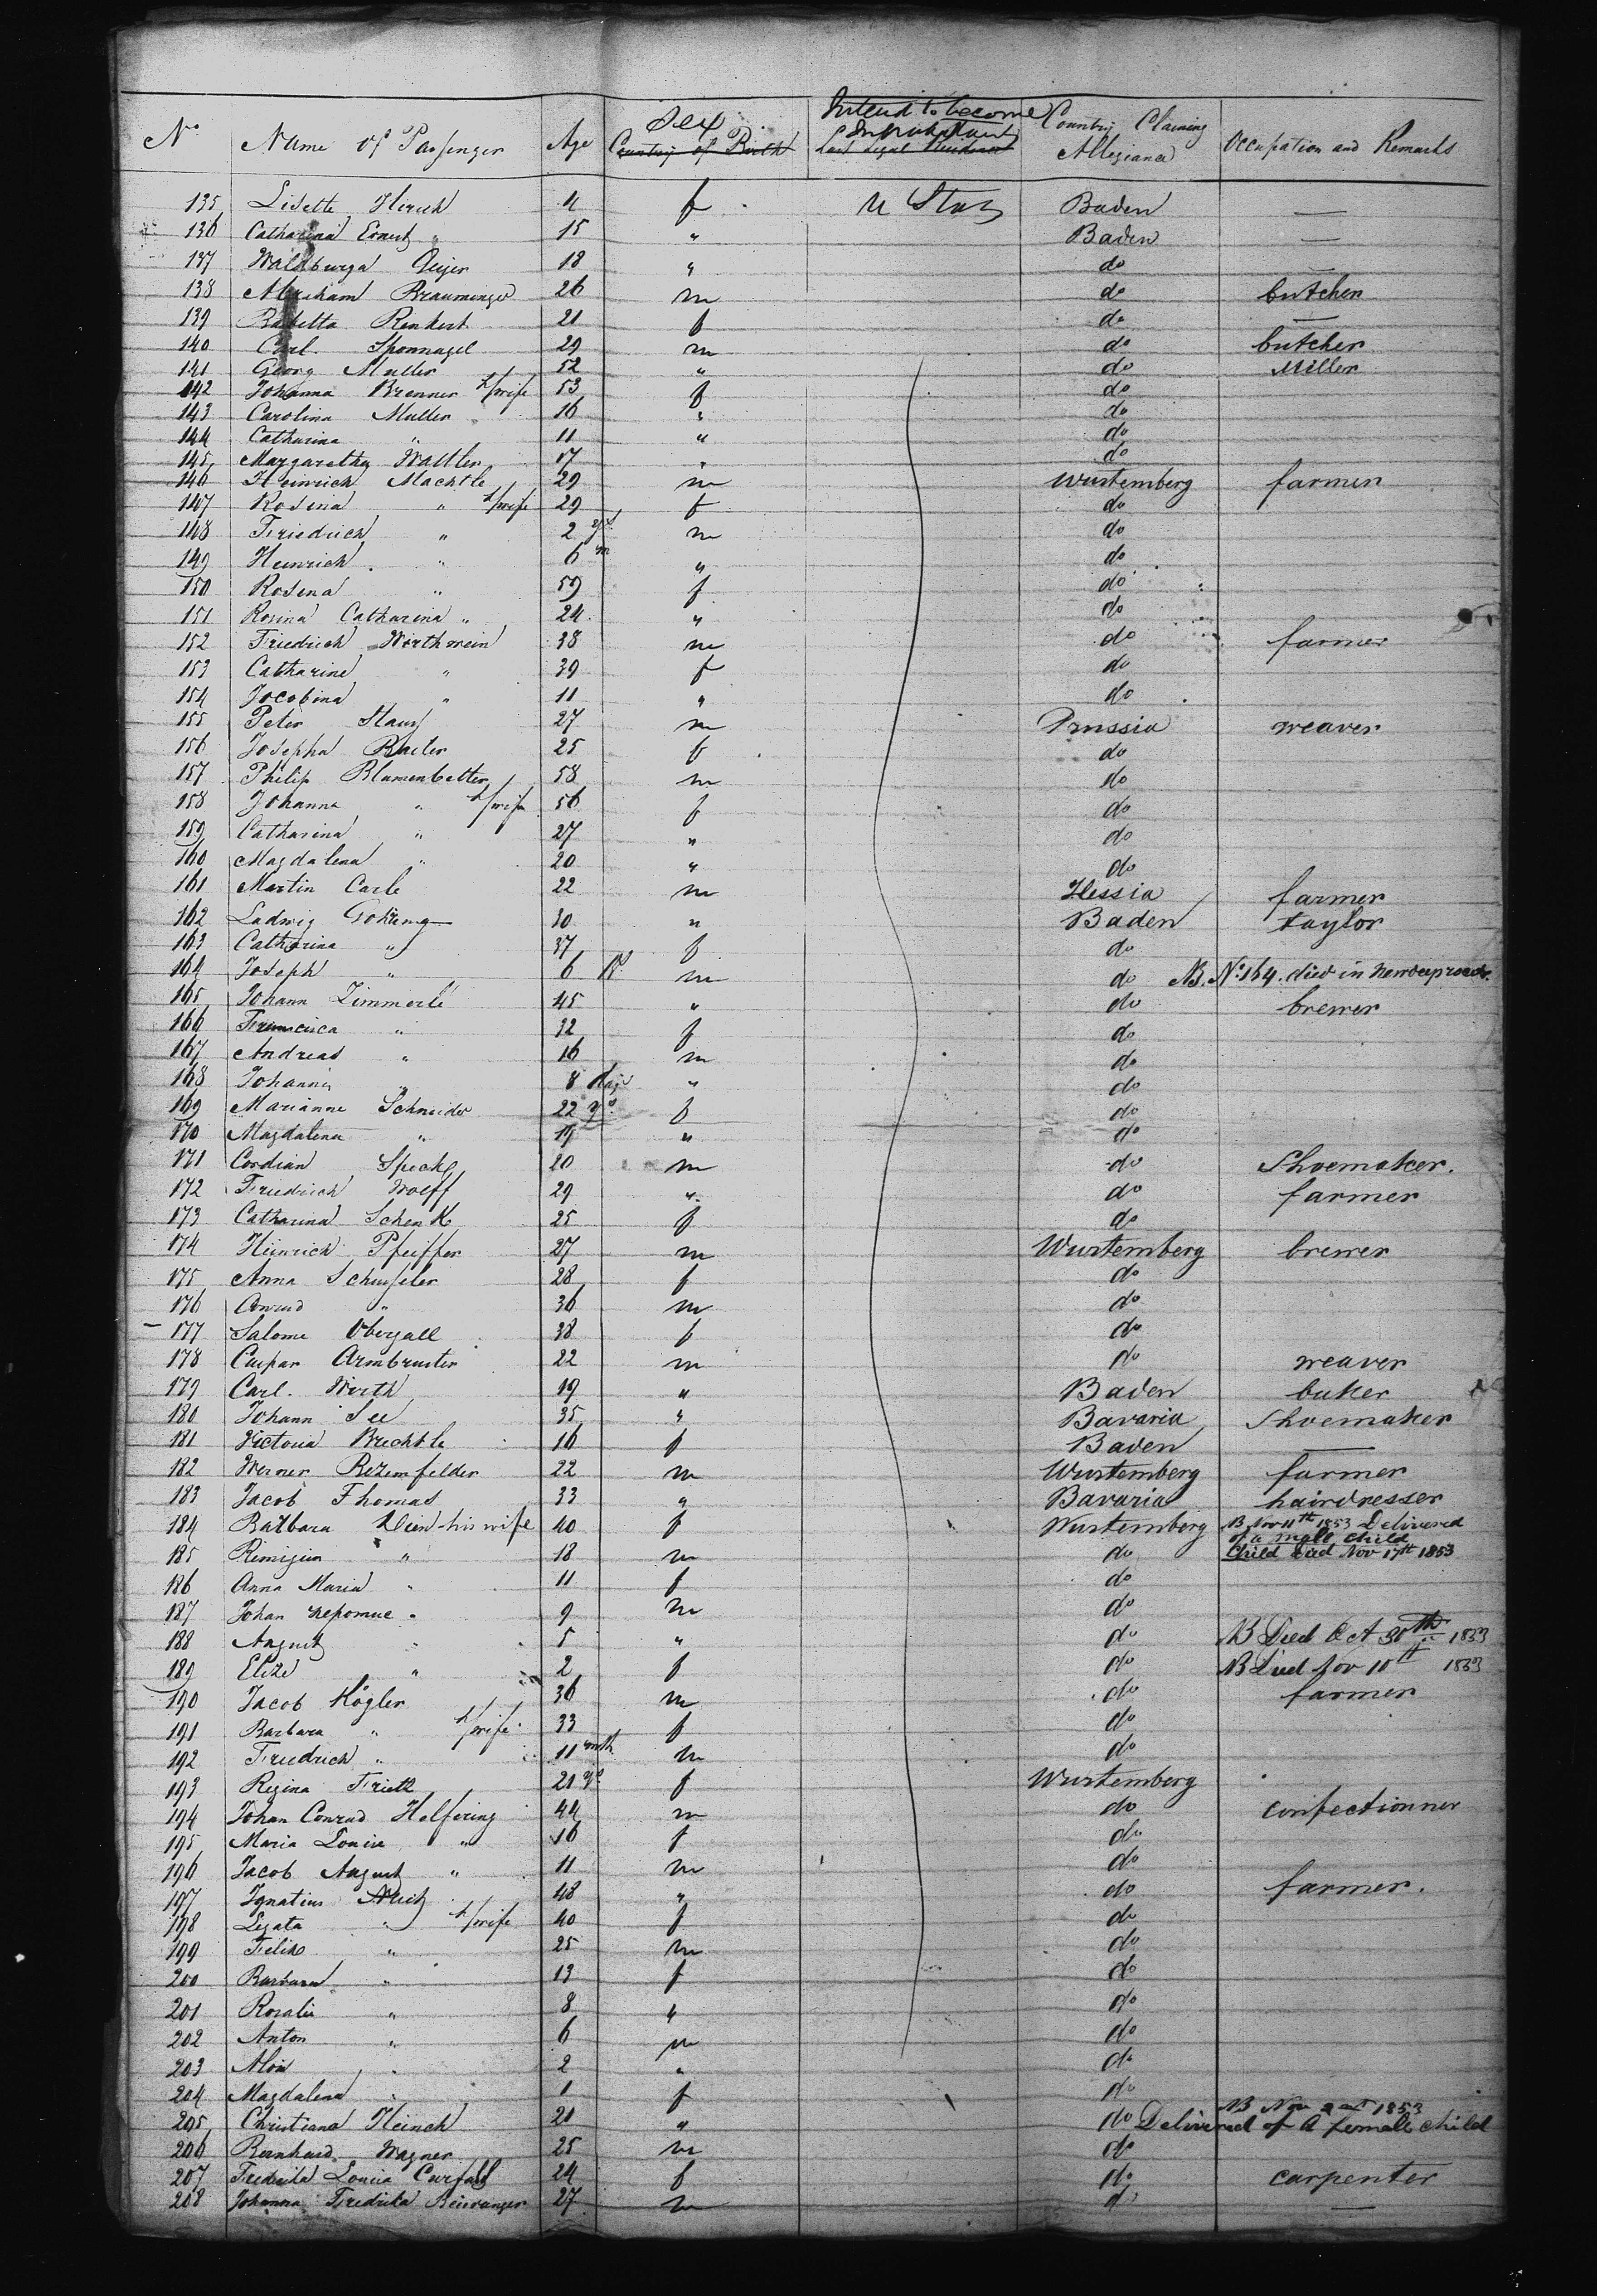 No Name of Passenger Age Sex Country of Birth Intend to become Inhabitant Last Legal Residence Country Claiming Allegiance Occupation and Remarks
135 Lisette Hirsch 4 f U Stas Baden —
136 Catharina Ernest " 15 " Baden —
137 Waldburga Geiger 18 " do —
138 Abraham Braumenger 26 m do butcher
139 Babetta Renkert 21 f do —
140 Carl Sponnagel 29 m do butcher
141 Georg Muller 52 " do Miller
142 Johanna Brenner h/wife 53 f do
143 Carolina Muller 16 " do
144 Catharina " 11 " do
145 Margaretha Wattler 17 " do
146 Heinrich Machtle 29 m Wurtemberg farmer
147 Rosina " h/wife 29 f do
148 Friedrich " 2 ys m do
149 Heinrich " 6 m " do
150 Rosina " 59 f do
151 Rosina Catharina " 24 " do
152 Friedrich Worthwein 38 m do farmer
153 Catharine " 39 f do
154 Jocobina " 11 " do
155 Peter Stauss 27 m Prussia weaver
156 Josepha Baeter 25 f do
157 Philip Blumenbetter 58 m do
158 Johanna " h/wife 56 f do
159 Catharina " 27 " do
160 Magdalena " 20 " do
161 Martin Carle 22 m Hessia farmer
162 Ludwig Gohring 30 " Baden taylor
163 Catharina " 37 f do
164 Joseph " 6 m do NB. No 164. died in
165 Johann Zimmerle 45 " do brewer
166 Francisca " 32 f do
167 Andreas " 16 m do
168 Johannes " 8 days " do
169 Marianne Schneider 22 ys f do
170 Magdalena " 19 " do
171 Cordian Speck 20 m do Shoemaker.
172 Friedrich Wolff 29 " do farmer
173 Catharina Schenk 25 f do
174 Heinrich Pfeiffer 27 m Wurtemberg brewer
175 Anna Scheufeler 28 f do
176 Conrad " 36 m do
177 Salome Obergall 38 f do
178 Caspar Armbruster 22 m do weaver
179 Carl. Wirth 19 " Baden baker
180 Johann See 35 " Bavaria Shoemaker
181 Victoria Brechtle 16 f Baden —
182 Werner Rezemfelder 22 m Wurtemberg farmer
183 Jacob Thomas 33 " Bavaria hairdresser
184 Barbara Dien his wife 40 f Wurtemberg NB Nov 11th 1853 Delivered
of a male child
185 Rimigius " 18 m do Child Died Nov 17th 1853
186 Anna Maria " 11 f do
187 Johan Nepomuc " 9 m do
188 August " 5 " do NB Died Oct 30th 1853
189 Elize " 2 f do NB Died Nov 10th 1853
190 Jacob Högler 36 m do farmer
191 Barbara " h/wife 33 f do
192 Friedrich " 11 mth m do
193 Regina Frietz 21 ys f Wurtemberg
194 Johan Conrad Helfering 44 m do confectionner
195 Maria Louise " 16 f do
196 Jacob August " 11 m do
197 Ignatius 48 " do farmer.
198 Legata " h/wife 40 f do
199 Felix " 25 m do
200 Barbara " 13 f do
201 Rosalie " 8 " do
202 Anton " 6 m do
203 Alois " 2 " do
204 Magdalena " 1 f do
205 Christiana Heinch 21 " do NB Nov 1853
Delivered of a female child
206 Bernhard Wagner 25 m do
207 Fredrika Louisa 24 f do carpenter
208 Johanna Fredrika 27 m do —